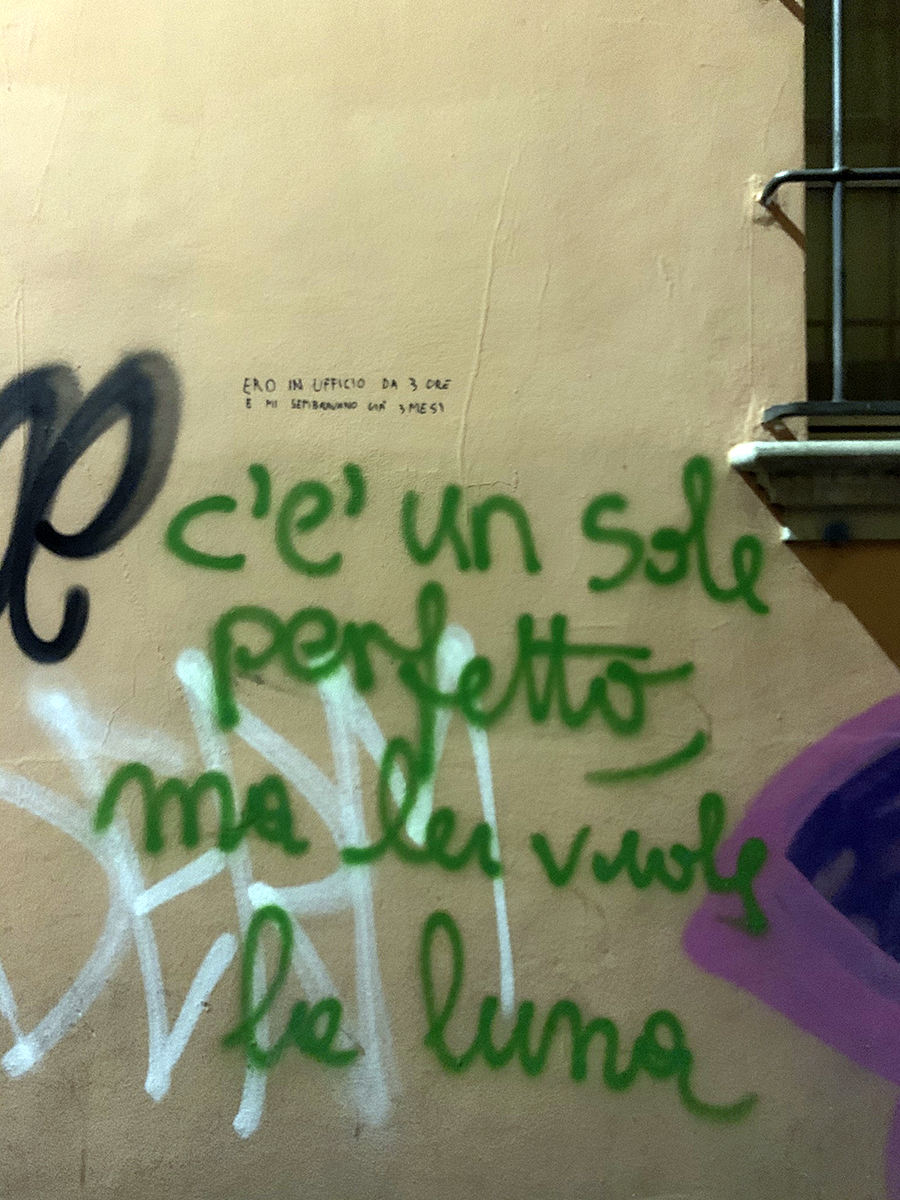 ERO IN UFFICIO DA 3 ORE
E MI SEMBRAVANO GIÀ 3 MESI
c'è un sole
perfetto
ma lei vuole
la luna